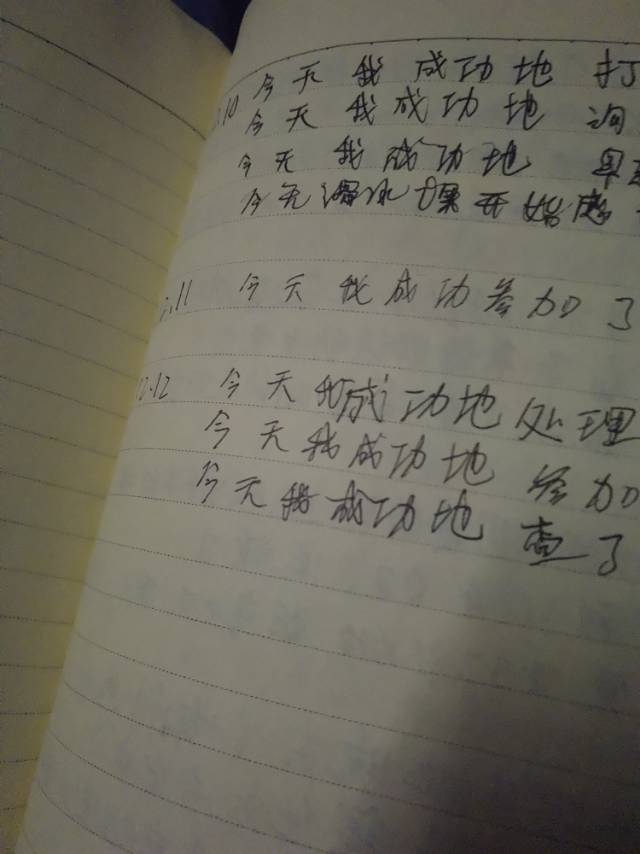 .10 今天我成功地打
今天我成功地询
今天我成功地早
今天滑冰课开始感
.11 今天我成功参加了
12.12 今天我成功地处理
今天我成功地参加
今天我成功地查了